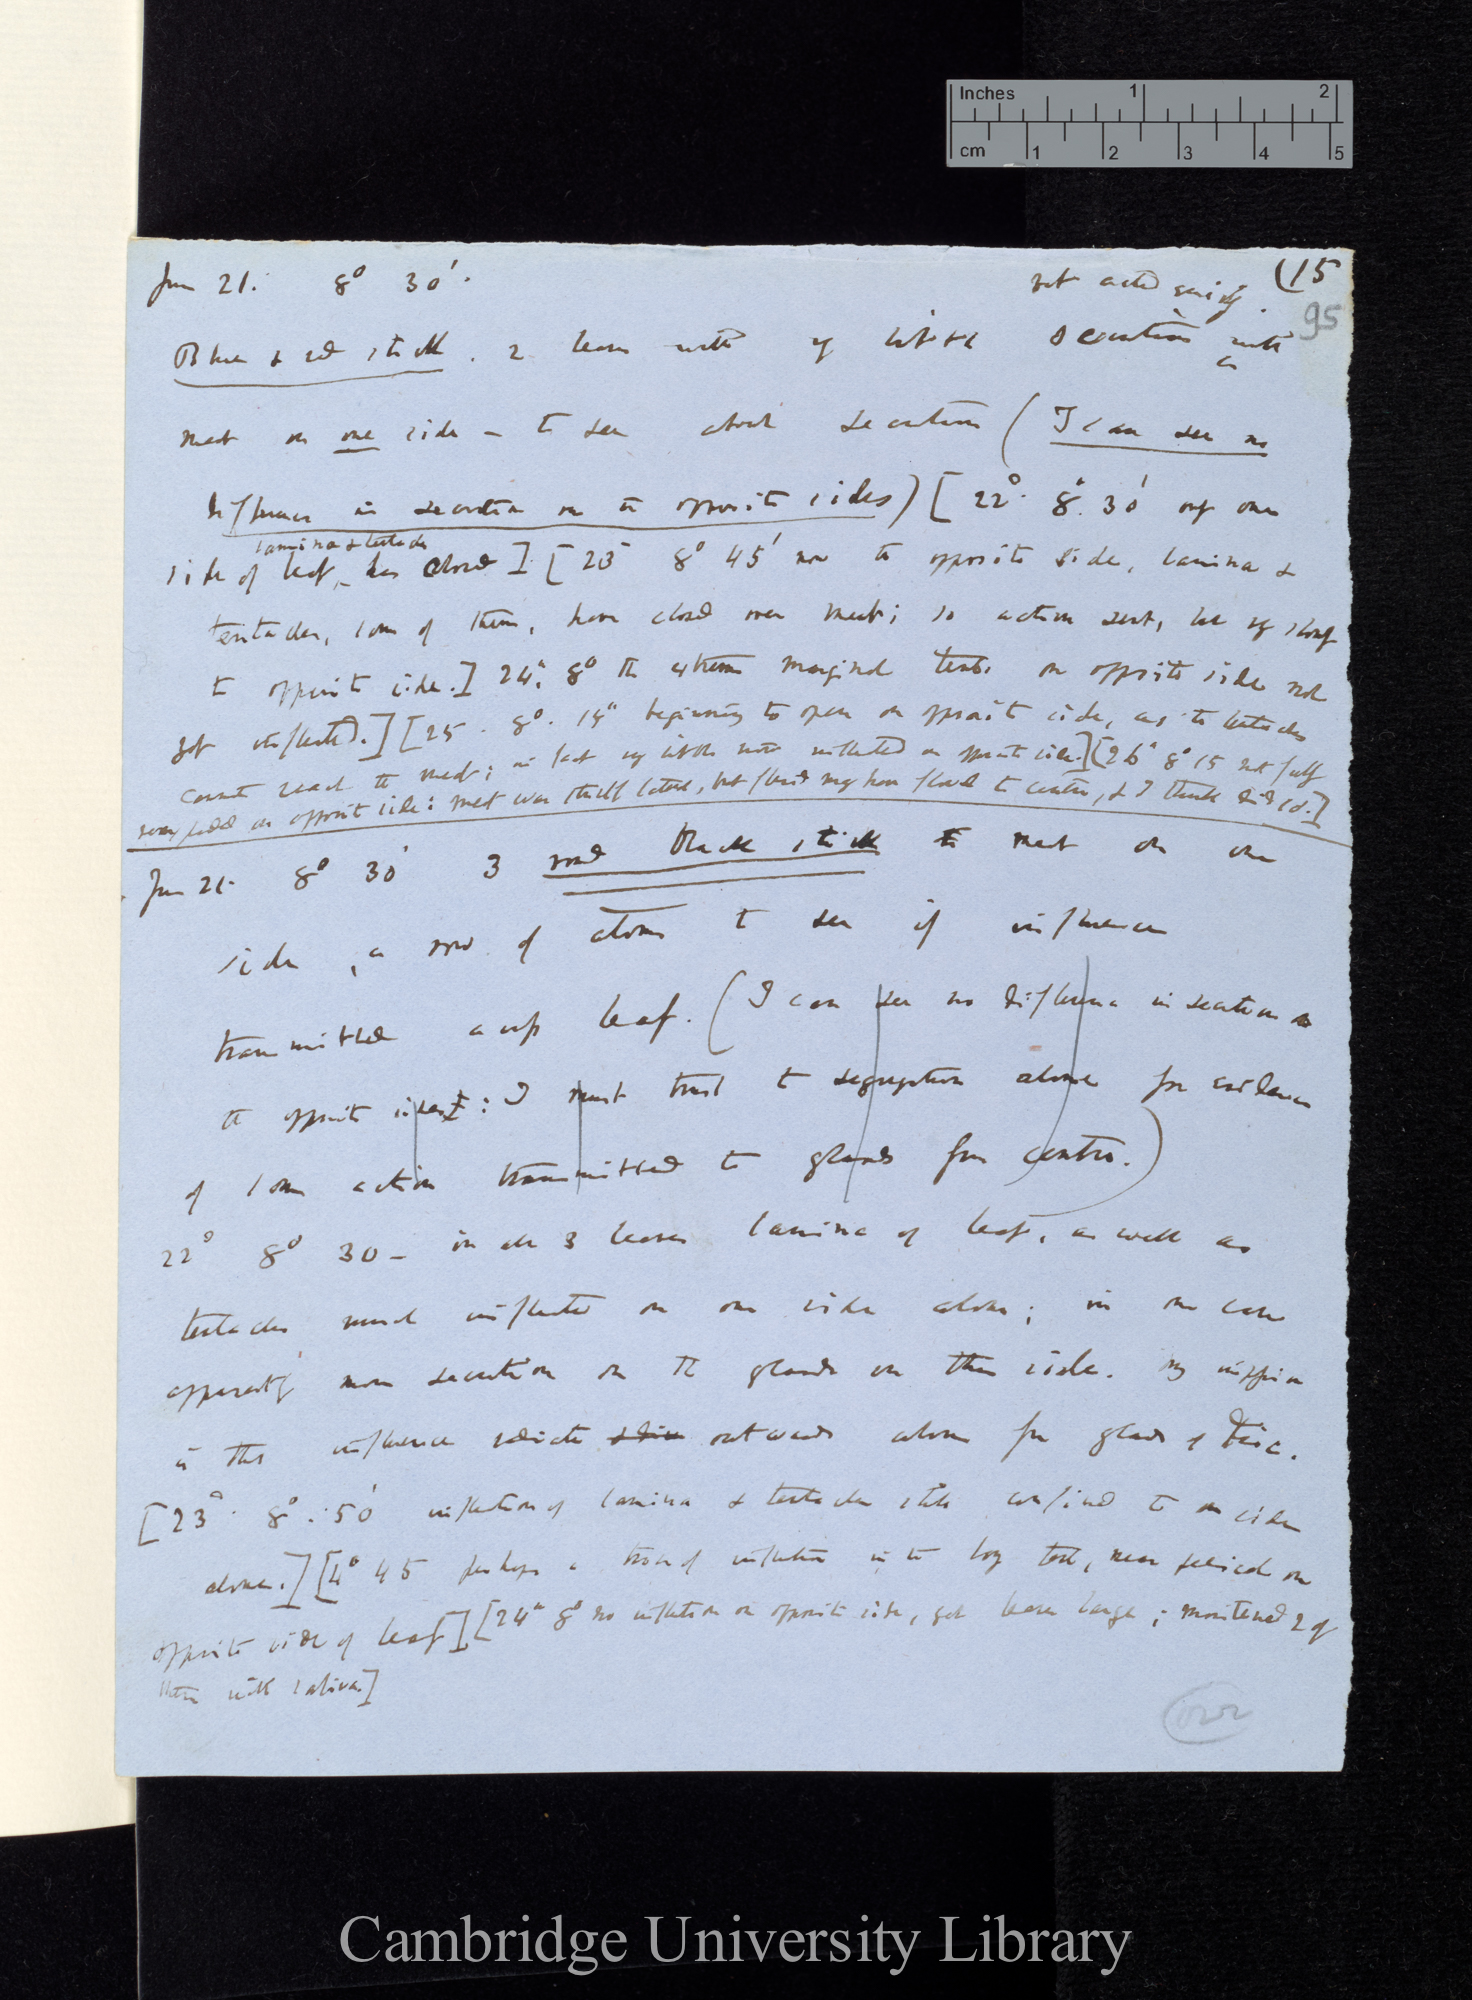 Inches 1 2
cm 1 2 3 4 5
(15
95
Jun 21. 8° 30'. not acted
Blue & red stick. 2 leaves with v little secretion with
meat on one side — to see about secretion (I can see no
difference in secretion on the opposite sides) [22° 8°. 30' only one
lamina & tentacles
side of leaf, has closed] [23 8° 45' now the opposite side, lamina &
tentacles, some of them, have closed over meat; so action sent, but v slowly
to opposite side.] 24th, 8° the extreme marginal tents. on opposite side not
yet inflected.] [25. 8°. 15" beginning to open on opposite side, as the tentacles
cannot reach the meat; in fact v little now inflected on opposite side.] [26 8° 15 not fully
on opposite side: meat was itself, but fluid may have flowed to centre, & I think did so.]
Jun 21. 8° 30' 3 Black stick meat on one
side, a row of atoms to see if influence
transmitted across leaf. (I can see no difference in secretion on
the opposite sides: I must trust to segregation alone for evidence
of some action transmitted to glands from centre.)
22° 8° 30 — in all 3 leaves lamina of leaf, as well as
tentacles much inflected on one side alone; in one case
apparently more secretion on the glands on this side. My
is this influence radiates outwards alone from glands of disc.
[23°. 8°. 50' inflection of lamina & tentacles still confined to one side
alone.] [4° 45 perhaps a trace of inflection in the long tent, near pedicel on
opposite side of leaf] [24th 8° no inflection on opposite side, yet leaves large; moistened 2 of
them with saliva]
over
Cambridge University Library